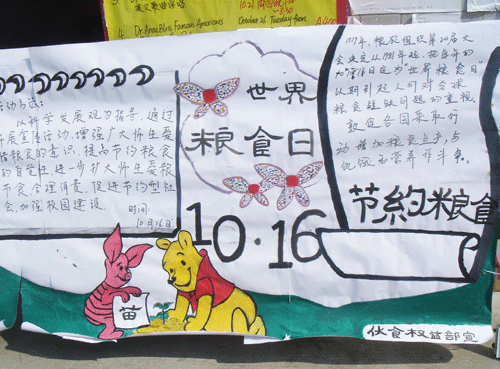 4. Dr. Anna Blow Famous Americans
October 26, Tuesday 7pm
以科学发展观为指导，通过
开展宣传活动，增强广大师生爱
惜粮食的意识、提高节约粮食
的自觉性进一步扩大师生爱粮
节食合理消费，促进节约型社
会加强校园建设
时间：
10月16日
世界
粮食日
10·16
1979年，粮农组织第20届大
会决定从1981年起，把每年的
以期引起人们对全球
粮食短缺问题的重视，
敦促各国采取行
动增加粮食生产，与
饥饿和营养作斗争。
节约粮食
苗
伙食权益部宣